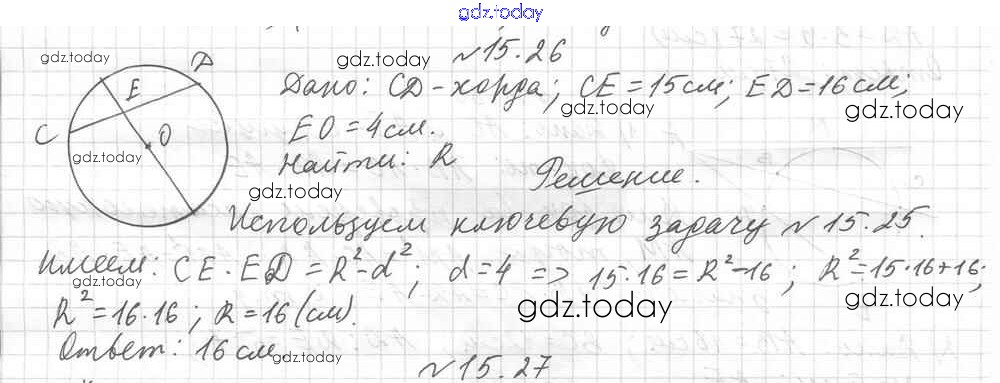 gdz.today
№15.26
gdz.today
gdz.today
D
E
C
O
gdz.today
Дано: CD-хорда; CE=15см; ED=16см;
gdz.today
gdz.today
EO=4см.
Найти: R
gdz.today
Решение.
Используем ключевую задачу №15.25.
Имеем: CE·ED=R²-d²; d=4 => 15·16=R²-16; R²=15·16+16;
gdz.today
gdz.today
gdz.today
R²=16·16; R=16(см).
Ответ: 16см.
gdz.today
№15.27